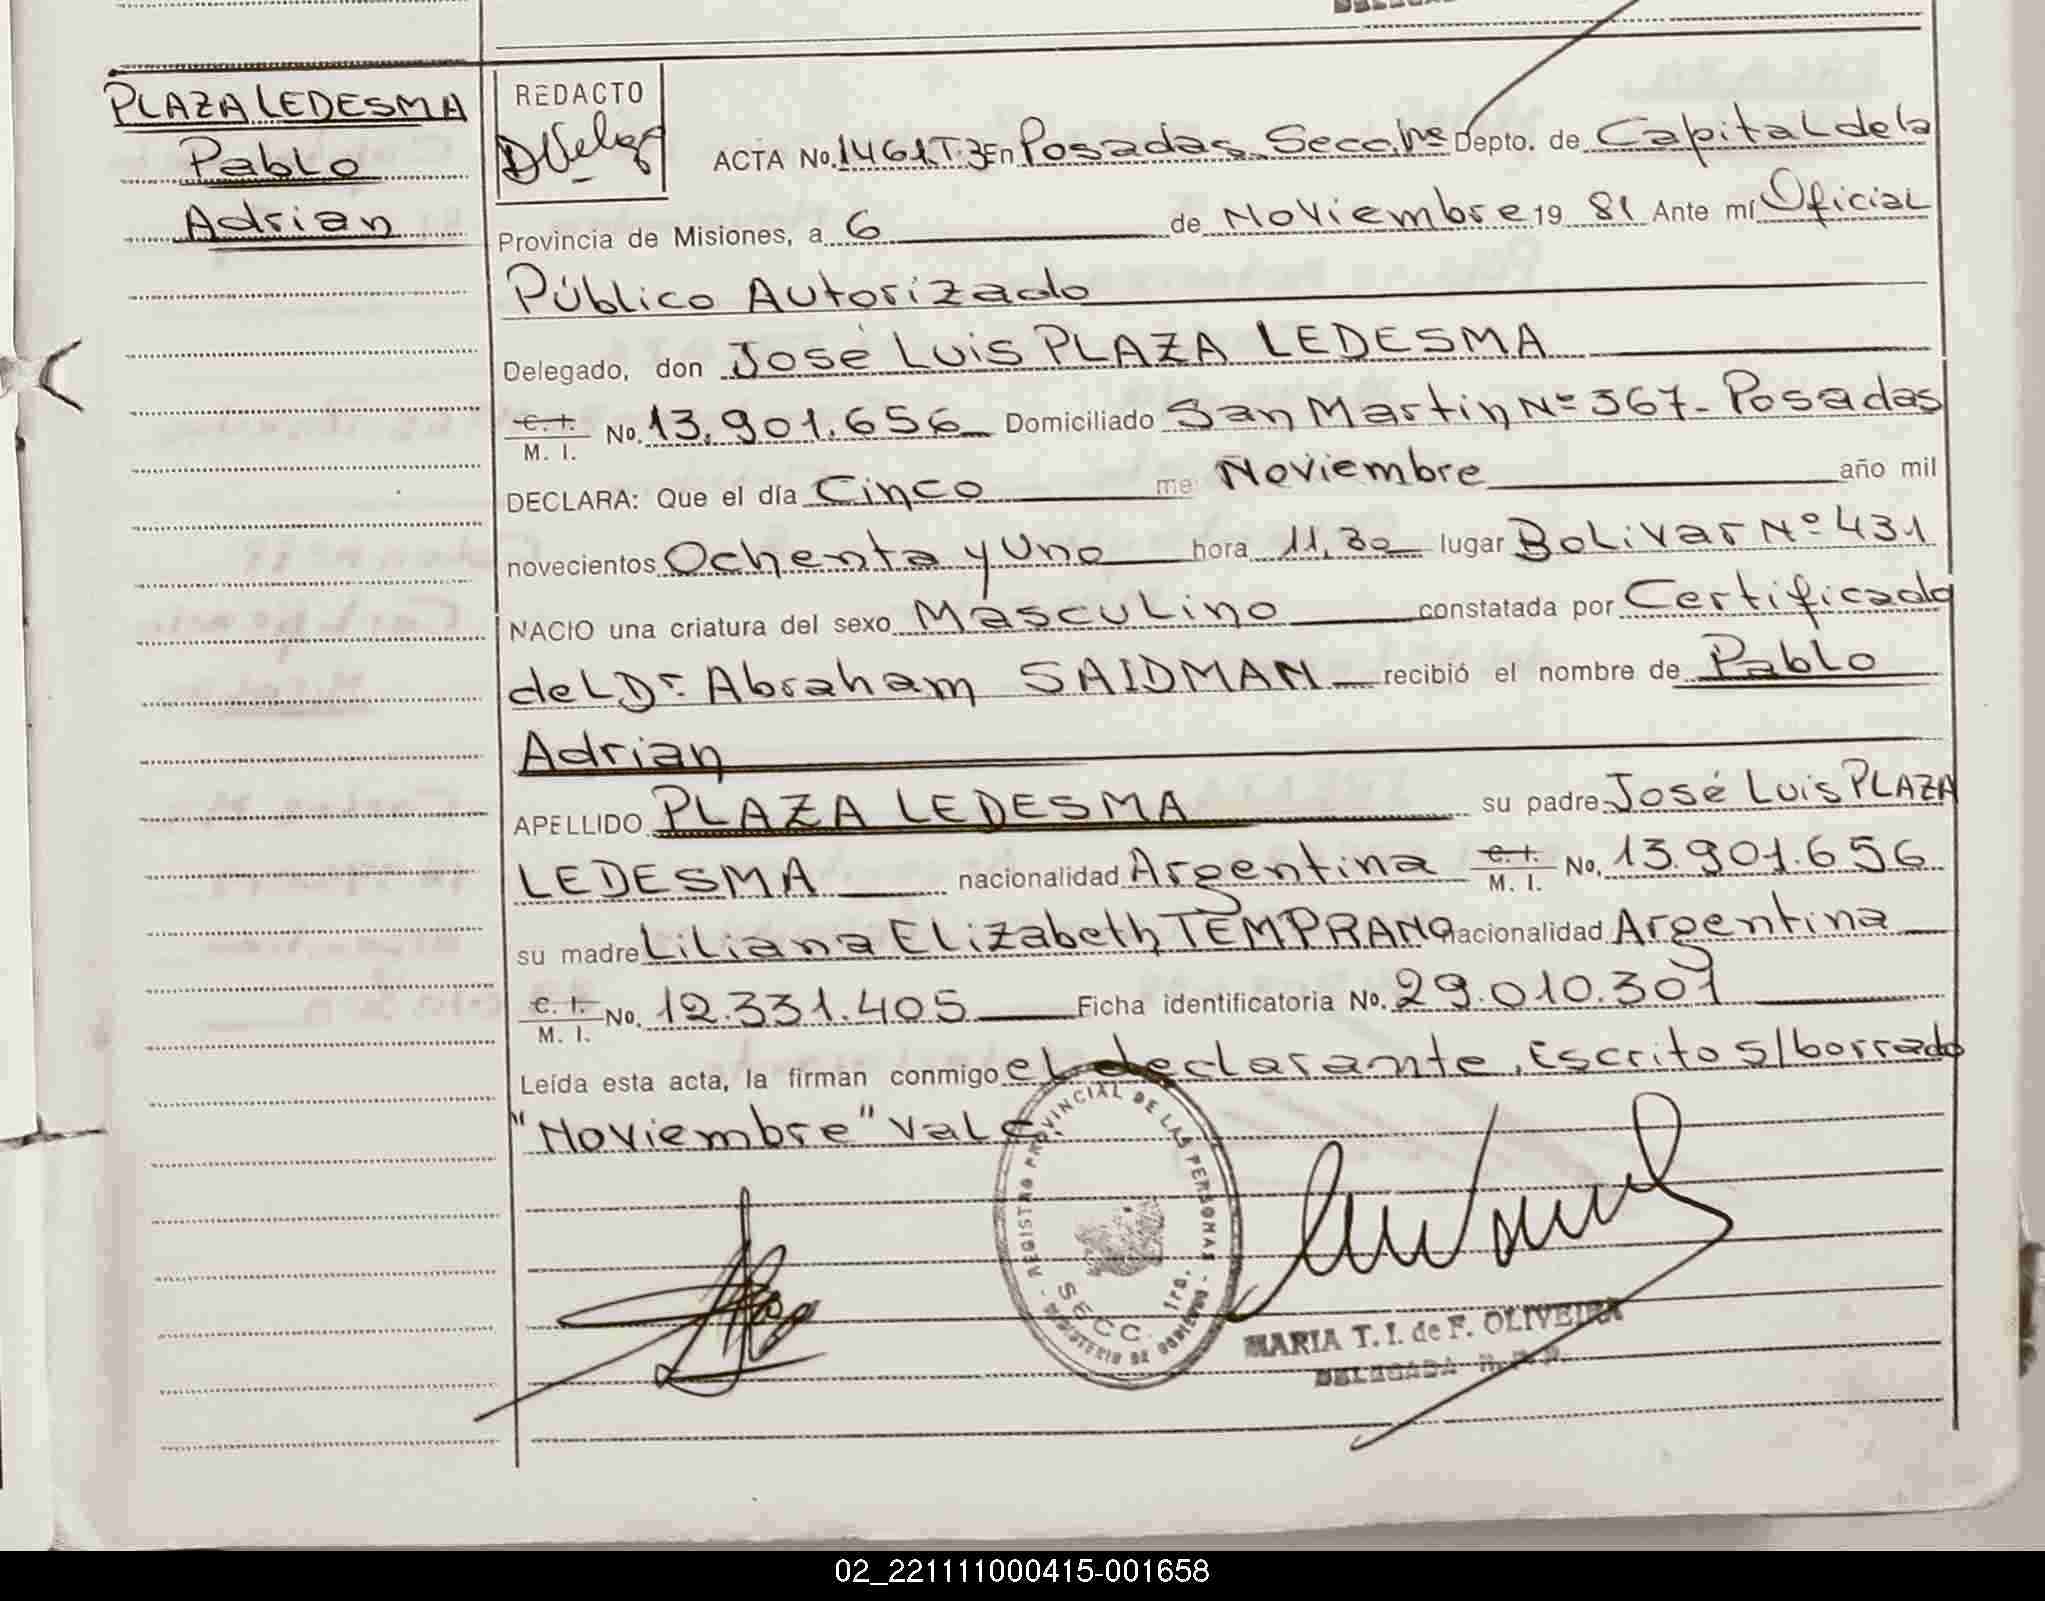 PLAZA LEDESMA
Pablo
Adrian
REDACTO
ACTA No. 1461.T.3 En Posadas. Secc. 1ra Depto. de Capital de la
Provincia de Misiones, a 6 de Noviembre 19 81 Ante mí Oficial
Público Autorizado
Delegado, don José Luis PLAZA LEDESMA
C. I. M. I. No. 13.901.656 Domiciliado San Martin Nº 367- Posadas
DECLARA: Que el día Cinco me Noviembre año mil
novecientos Ochenta y Uno hora 11,30 lugar Bolivar Nº 431
NACIO una criatura del sexo Masculino constatada por Certificado
del Dr. Abraham SAIDMAN recibió el nombre de Pablo
Adrian
APELLIDO PLAZA LEDESMA su padre José Luis PLAZA
LEDESMA nacionalidad Argentina C. I. M. I. No. 13.901.656
su madre Liliana Elizabeth TEMPRANO nacionalidad Argentina
C. I. M. I. No. 12.331.405 Ficha identificatoria No. 29.010.301
Leída esta acta, la firman conmigo el declarante. Escrito s/borrado
"Noviembre" Vale.
REGISTRO PROVINCIAL DE LAS PERSONAS
SECC. 1ra.
MINISTERIO DE GOBIERNO
MARIA T. I. de F. OLIVEIRA
DELEGADA R. P. P.
02_221111000415-001658